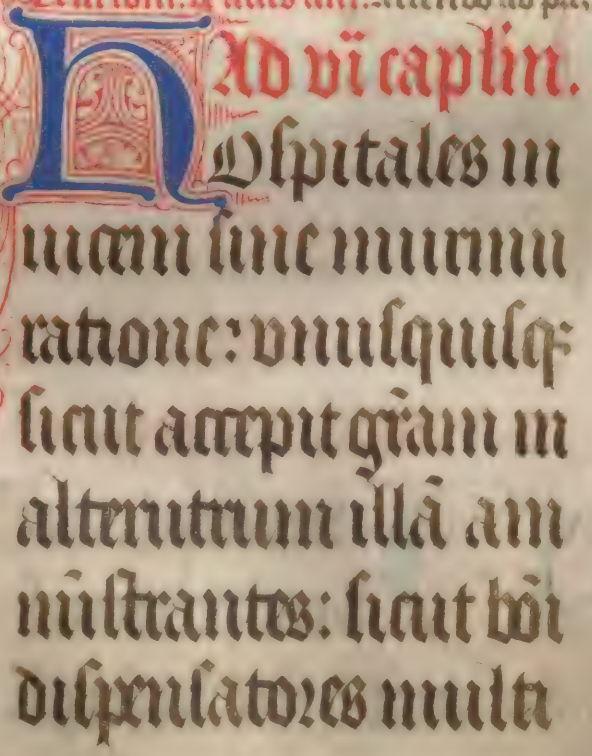 Ad vi caplm.
HOspitales in
uicem sine murmu
ratione: vnusquisq;
sicut accepit grãm in
alterutrum illã am
nistrantes: sicut bõi
dispensatores multi